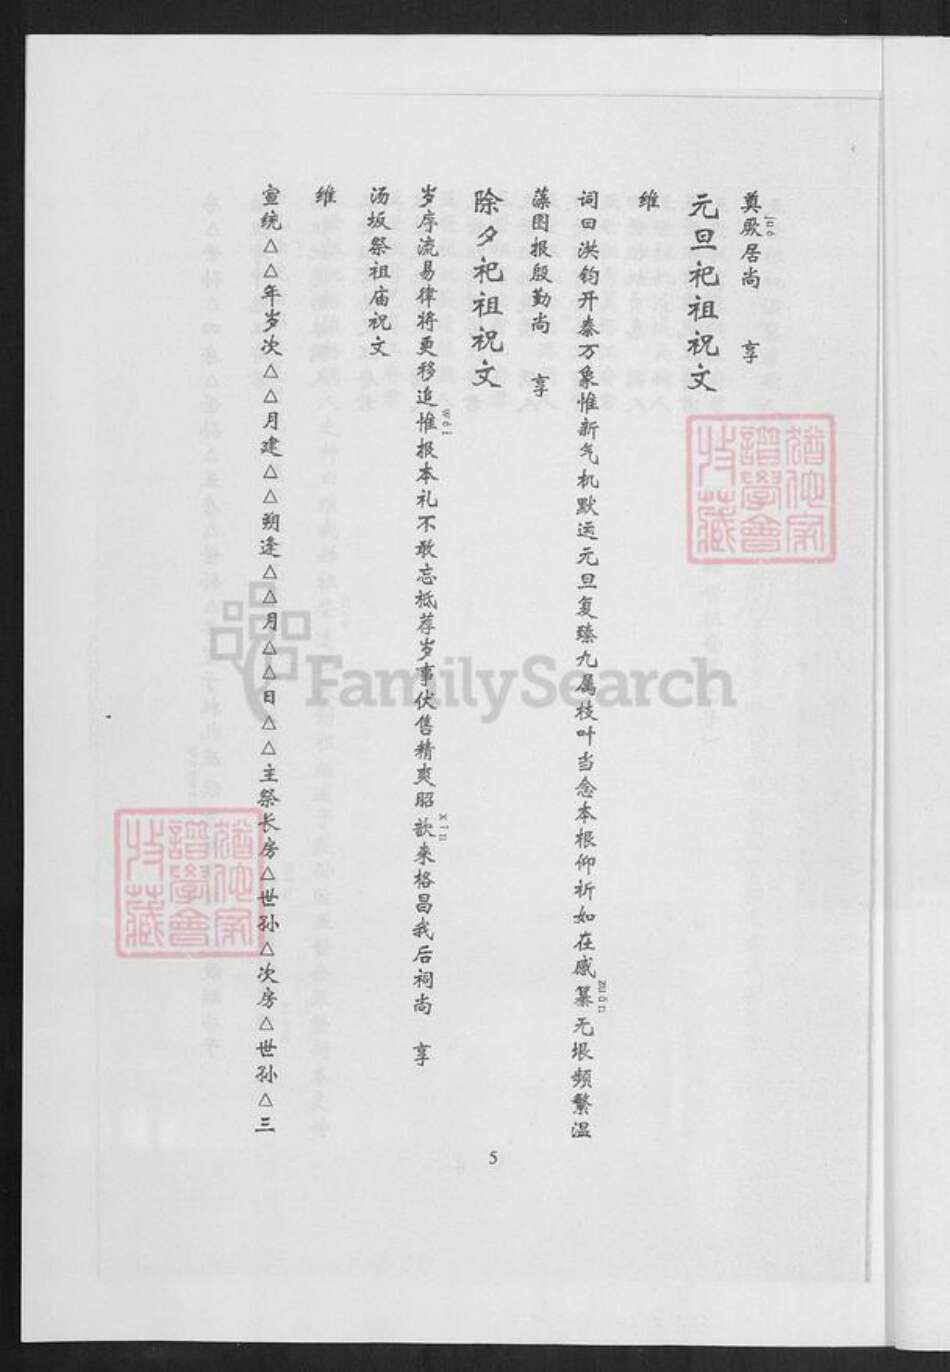 奠厥居尚 享
jué
元旦祀祖祝文
维
词曰洪钧开泰万象惟新气机默运元旦复臻九属枝叶当念本根仰祈如在感纂无垠频繁温
zuǒn
藻图报殷勤尚 享
除夕祀祖祝文
岁序流易律将更移追惟报本礼不敢忘祗荐岁事伏售精爽昭歆来格昌我后祠尚 享
wéi
xīn
汤坂祭祖庙祝文
维
宣统△△年岁次△△月建△△朔逢△△月△△日△△主祭长房△世孙△次房△世孙△三
5
猶他家譜學會收藏
猶他家譜學會收藏
FamilySearch